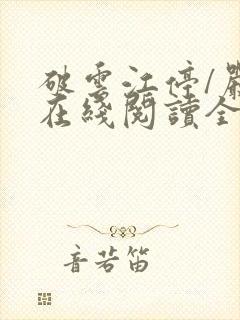 破雲江停/嚴
在綫閱讀全
音若笛